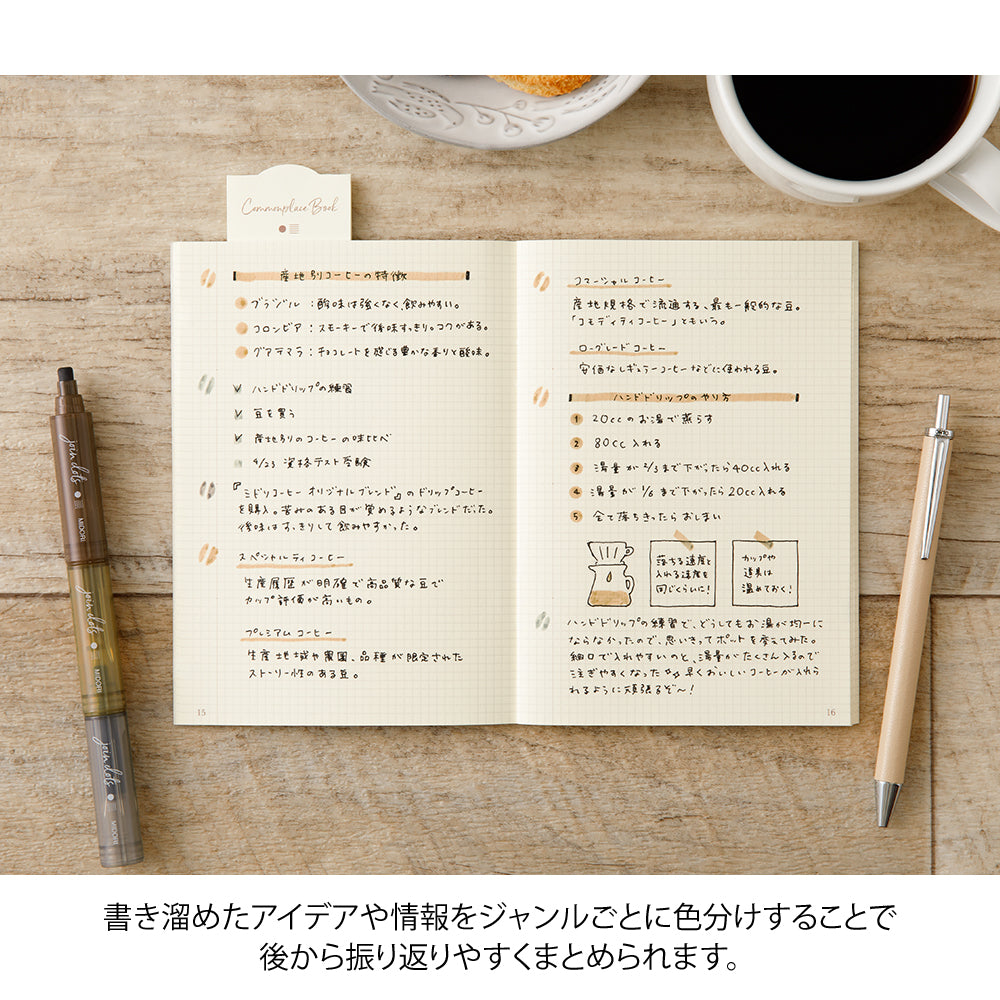 Commonplace Book
産地別コーヒーの特徴
ブラジル：酸味は強くなく、飲みやすい。
コロンビア：スモーキーで後味すっきり。コクがある。
グアテマラ：チョコレートを感じる豊かな香りと酸味。
ハンドドリップの練習
豆を買う
産地別のコーヒーの味比べ
9/23 資格テスト受験
『ミドリコーヒー オリジナルブレンド』のドリップコーヒー
を購入。苦みのある目が覚めるようなブレンドだった。
後味はすっきりして飲みやすかった。
スペシャルティコーヒー
生産履歴が明確で高品質な豆で
カップ評価が高いもの。
プレミアムコーヒー
生産地域や農園、品種が限定された
ストーリー性のある豆。
15
コマーシャルコーヒー
産地規格で流通する、最も一般的な豆。
「コモディティコーヒー」ともいう。
ローグレードコーヒー
安価なレギュラーコーヒーなどに使われる豆。
ハンドドリップのやり方
1 20ccのお湯で蒸らす
2 80cc入れる
3 湯量が2/3まで下がったら40cc入れる
4 湯量が1/6まで下がったら20cc入れる
5 全て落ちきったらおしまい
落ちる速度と
入れる速度を
同じくらいに！
カップや
道具は
温めておく！
ハンドドリップの練習で、どうしてもお湯が均一に
ならなかったので、思いきってポットを変えてみた。
細口で入れやすいのと、湯量がたくさん入るので
注ぎやすくなった 早くおいしいコーヒーが入れら
れるように頑張るぞ～！
16
join dots
MIDORI
join dots
MIDORI
join dots
MIDORI
書き溜めたアイデアや情報をジャンルごとに色分けすることで
後から振り返りやすくまとめられます。